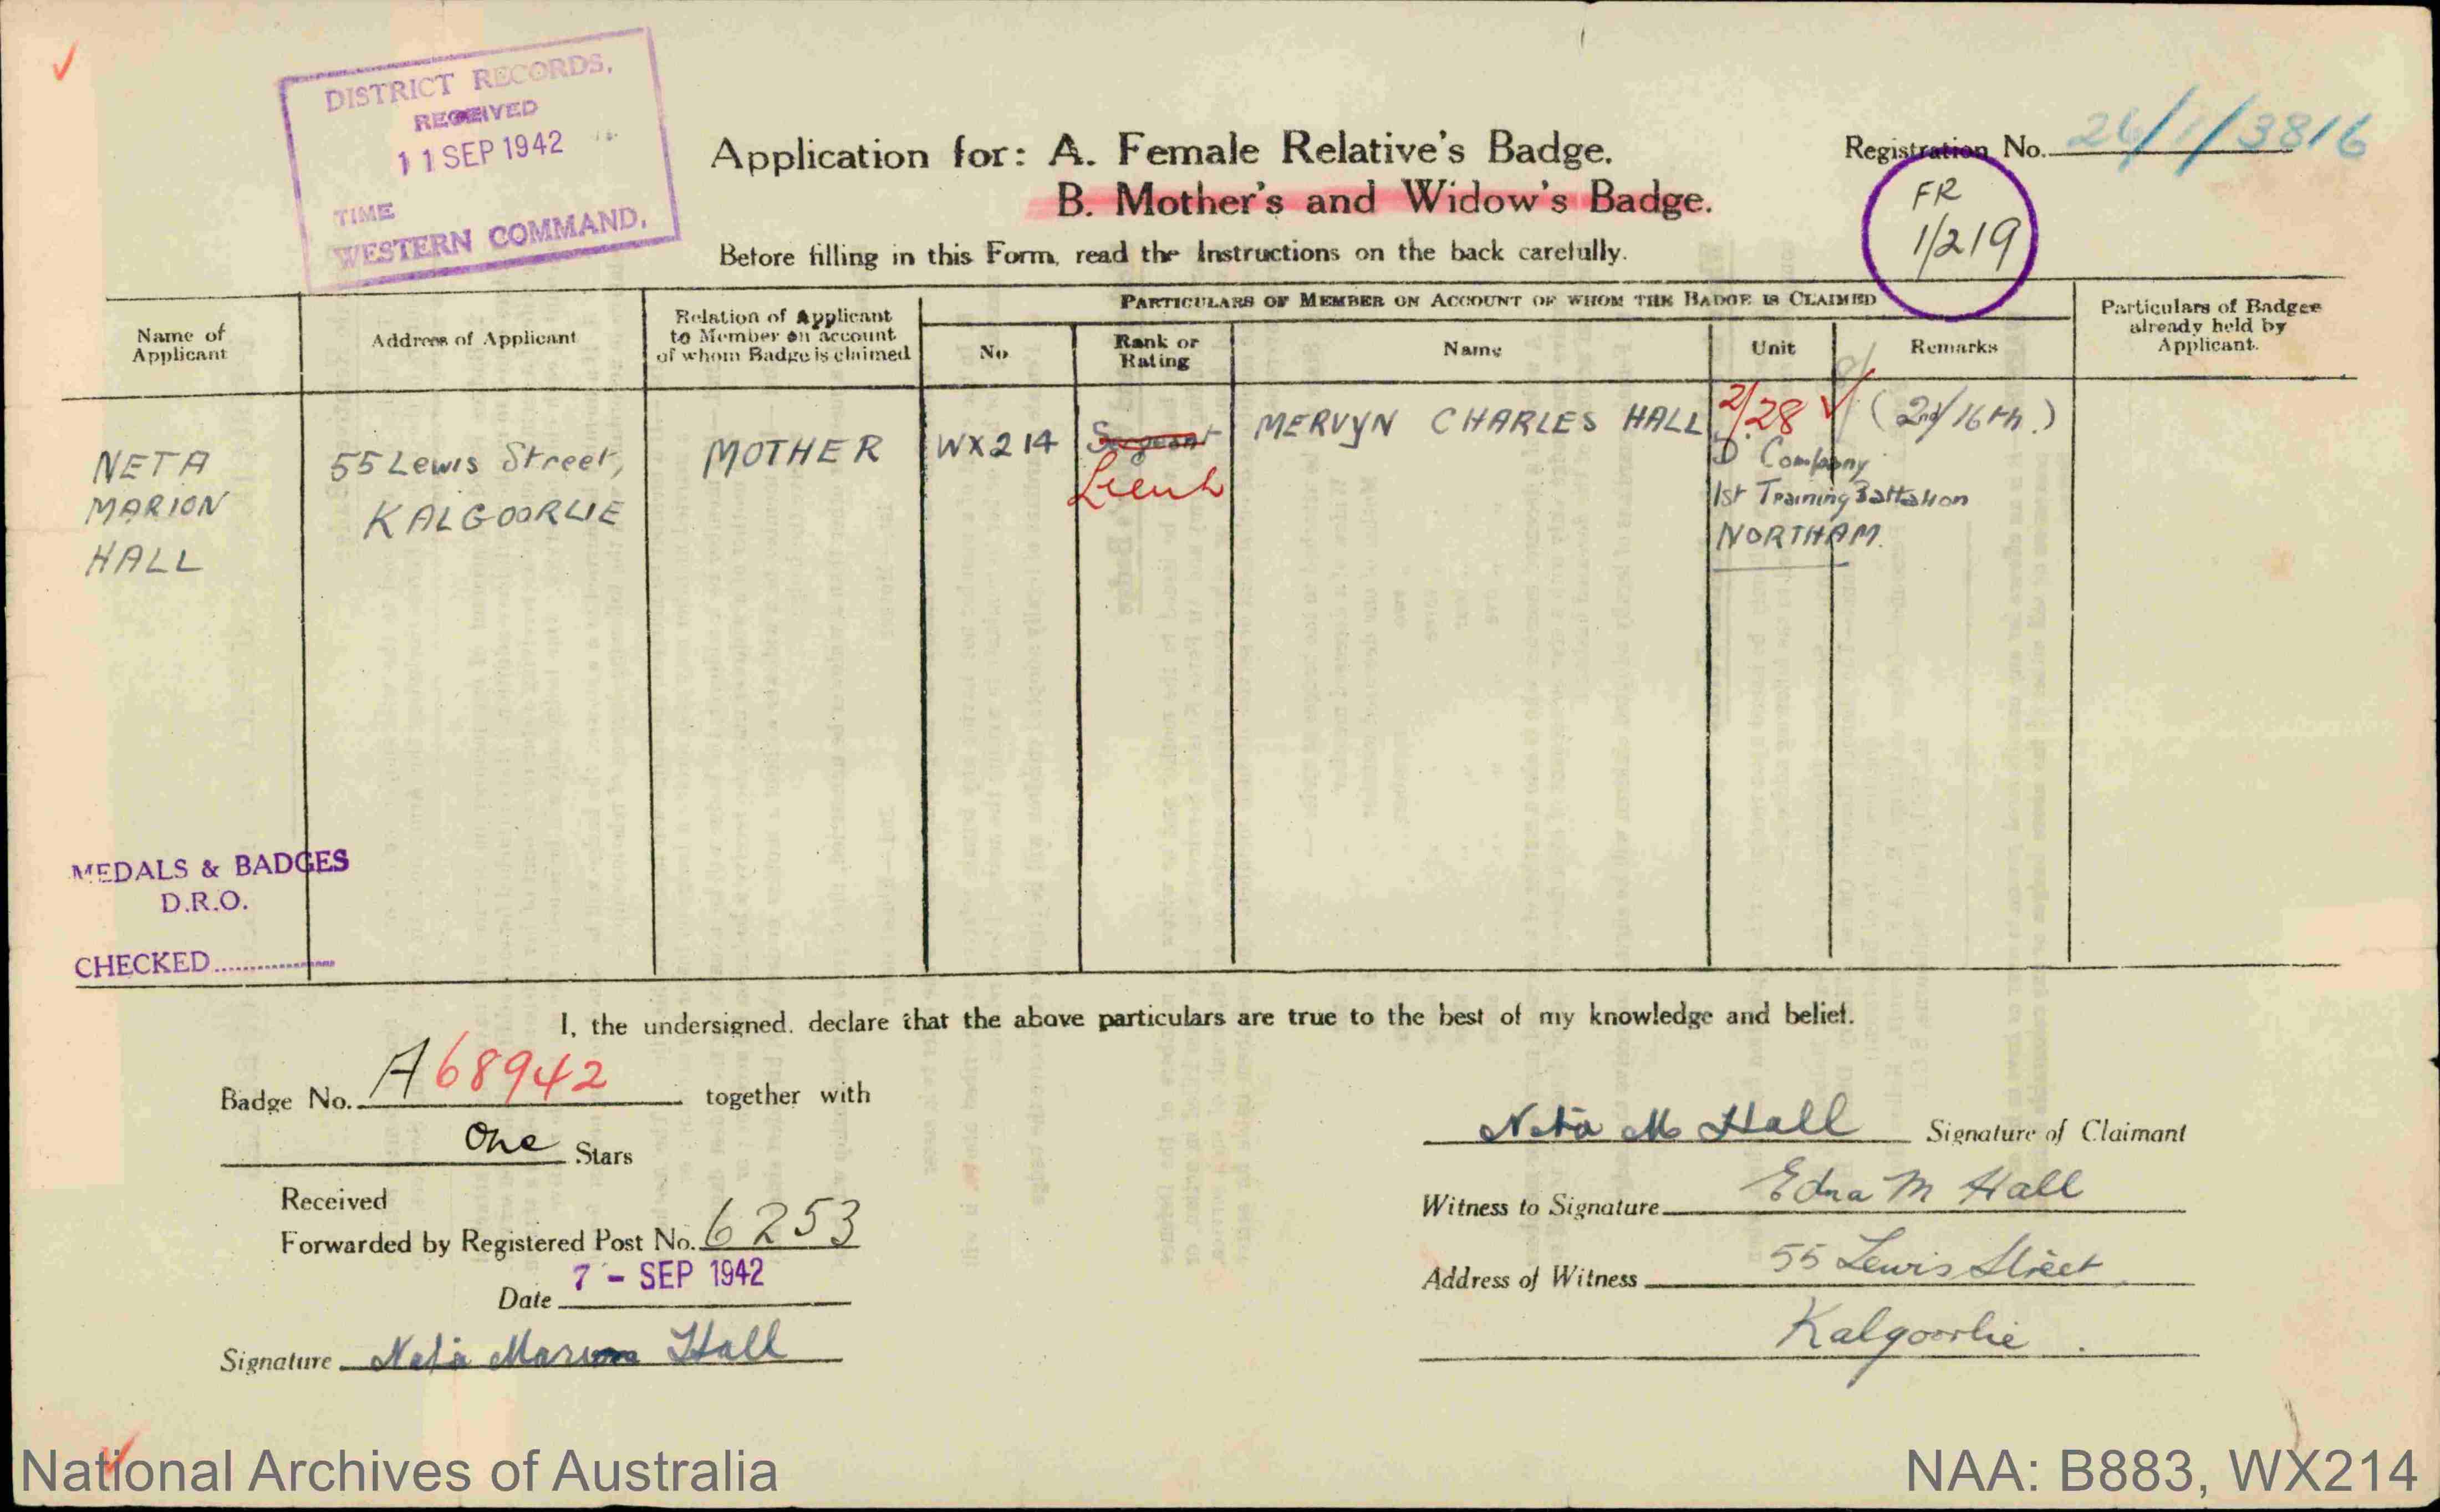 DISTRICT RECORDS,
RECEIVED
11 SEP 1942
TIME
WESTERN COMMAND.
Application for: A. Female Relative's Badge.
B. Mother's and Widow's Badge.
Before filling in this Form, read the Instructions on the back carefully.
Registration No. 24/1/3816
FR
1/219
Name of
Applicant
Address of Applicant
Relation of Applicant
to Member on account
of whom Badge is claimed
PARTICULARS OF MEMBER ON ACCOUNT OF WHOM THE BADGE IS CLAIMED
No
Rank or
Rating
Name
Unit
Remarks
Particulars of Badges
already held by
Applicant.
NETA
MARION
HALL
55 Lewis Street,
KALGOORLIE
MOTHER
WX214
Sergeant
Lieut
MERVYN CHARLES HALL
2/28 (2nd/16th.)
D Company
1st Training Battalion
NORTHAM.
MEDALS & BADGES
D.R.O.
CHECKED
I, the undersigned, declare that the above particulars are true to the best of my knowledge and belief.
Badge No. A68942 together with
One Stars
Received
Forwarded by Registered Post No. 6253
Date 7 - SEP 1942
Signature Neta Marion Hall
Neta M Hall Signature of Claimant
Witness to Signature Edna M Hall
Address of Witness 55 Lewis Street
Kalgoorlie.
National Archives of Australia
NAA: B883, WX214